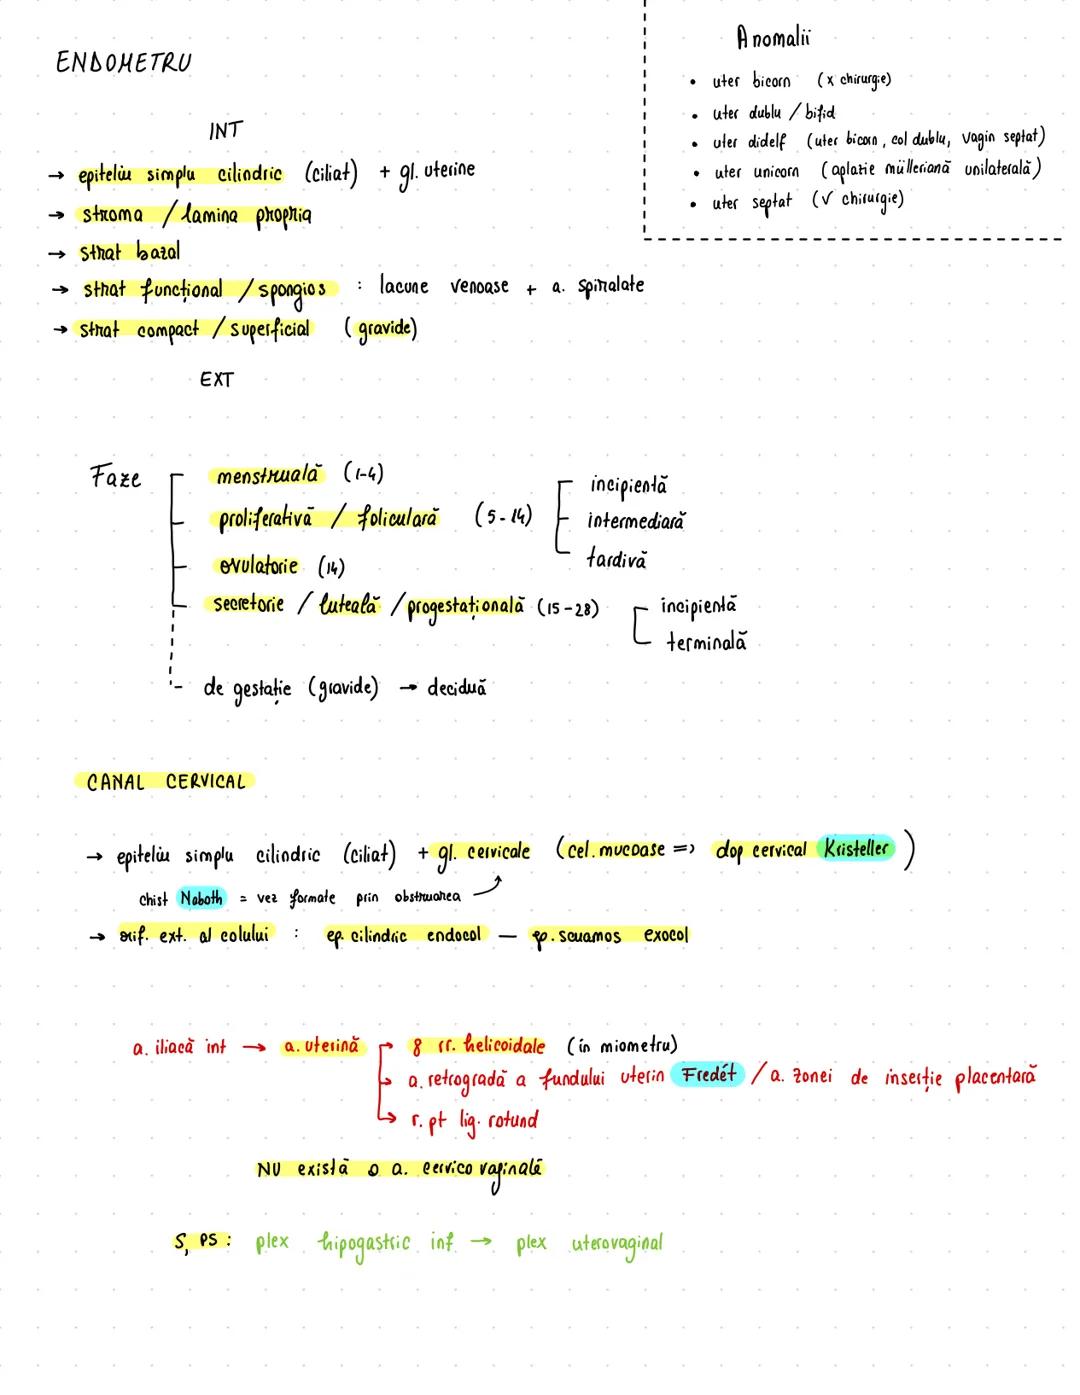 ENDOMETRU
INT
→ epiteliu simplu cilindric (ciliat) + gl. uterine
→ stroma / lamina propria
→ strat bazal
→ strat funcțional / spongios : lacune venoase + a. spiralate
→ strat compact / superficial (gravide)
EXT
Anomalii
• uter bicorn (x chirurgie)
• uter dublu / bifid
• uter didelf (uter bicorn, col dublu, vagin septat)
• uter unicorn (aplazie mülleriană unilaterală)
• uter septat (√ chirurgie)
Faze
menstruală (1-4)
proliferativă / foliculară (5-14)
incipientă
intermediară
tardivă
ovulatorie (14)
secretorie / luteală / progestațională (15-28)
incipientă
terminală
de gestație (gravide) → deciduă
CANAL CERVICAL
→ epiteliu simplu cilindric (ciliat) + gl. cervicale (cel. mucoase => dop cervical Kristeller)
chist Naboth = vez formate prin obstruarea
→ orif. ext. al colului : ep. cilindric endocol — ep. scuamos exocol
a. iliacă int → a. uterină
8 rr. helicoidale (în miometru)
a. retrogradă a fundului uterin Fredét / a. zonei de inserție placentară
r. pt lig. rotund
NU există o a. cervico vaginală
S, PS : plex hipogastric inf → plex uterovaginal